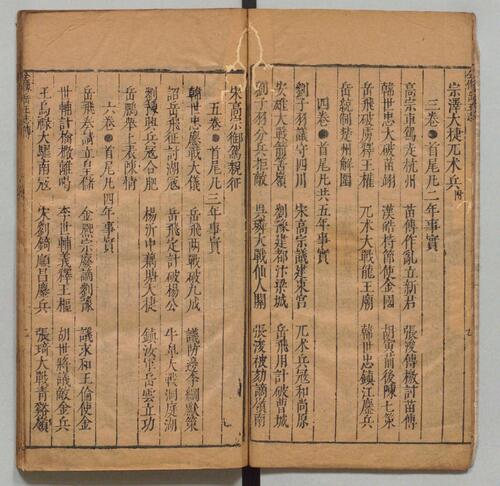 宗澤大捷兀朮兵
三卷●首尾凡二年事實
高宗車駕走杭州 苗傅作亂立新君 張浚傳檄討苗傅
韓世忠大破苗翊 漢皓持節使金國 胡寅前後陳七策
岳飛破虜釋王權 兀朮大戰龍王廟 韓世忠鎮江鏖兵
岳統制楚州解圍
四卷●首尾凡共五年事實
劉子羽議守四川 宋高宗議建東宮 兀朮兵寇和尚原
安雄大戰箭筈嶺 劉豫建都汴梁城 岳飛用計破曹城
劉子羽分兵拒敵 吳璘大戰仙人關 張浚被劾謫嶺南
宋高宗御駕親征
五卷●首尾凡三年事實
韓世忠鏖戰大儀 岳飛兩戰破九成 議防邊李綱獻策
詔岳飛征討湖寇 岳飛定計破楊么 牛皐大戰洞庭湖
劉豫興兵寇合肥 楊沂中藕塘大捷 鎮汝軍岳雲立功
岳鵬舉上表陳情
六卷●首尾凡四年事實
岳飛奏請立皇儲 金熙宗廢謫劉豫 議求和王倫使金
世輔計擒撒離喝 李世輔義釋王權 胡世將議敵金兵
王烏祿大驅南寇 宋劉錡順昌鏖兵 張琦大戰青谿嶺